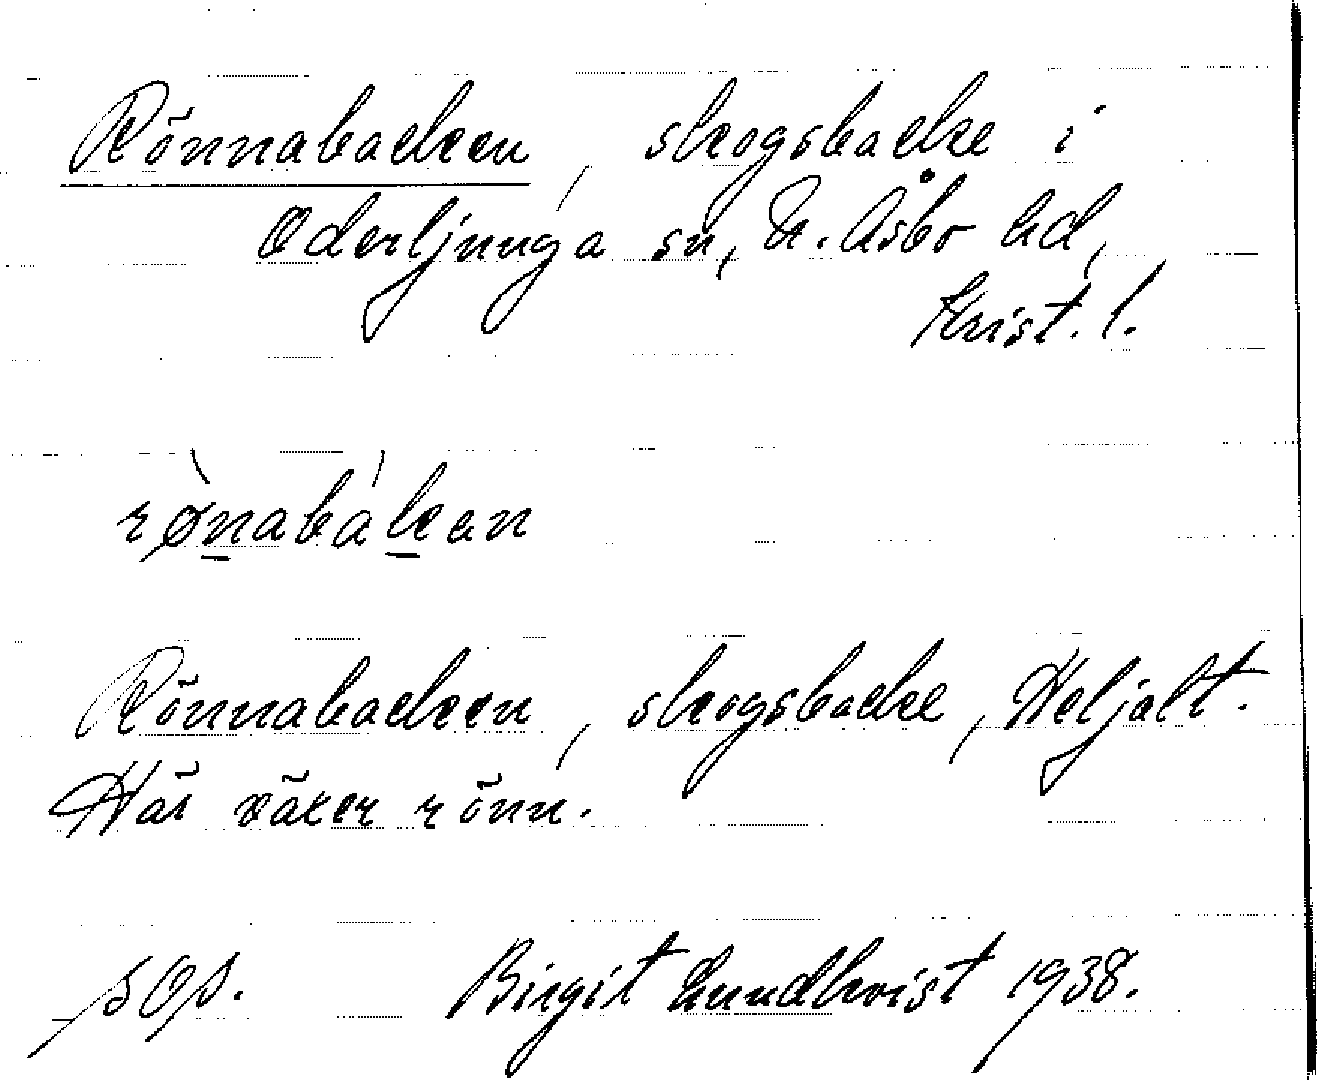 Rönnabacken, skogsbacke i
Oderljunga sn, N. Åsbo hd,
Krist. l.
rønabàkan
Rönnabacken, skogsbacke, Heljalt.
Här växer rönn.
SOS. Birgit Lundkvist 1938.